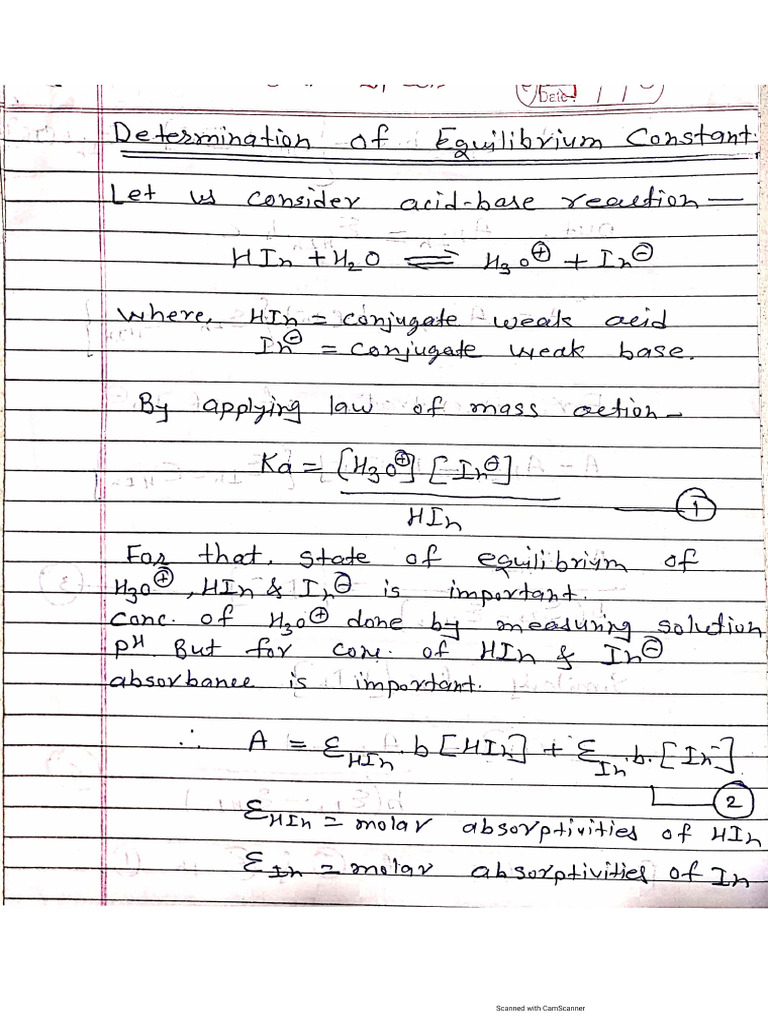 Date:
Determination of Equilibrium Constant.
Let us consider acid-base reaction —
HIn + H₂O ⇌ H₃O⊕ + In⊖
Where, HIn = conjugate weak acid
In⊖ = conjugate weak base.
By applying law of mass action –
Ka = [H₃O⊕] [In⊖]
①
HIn
For that, state of equilibrium of
H₃O⊕, HIn & In⊖ is important.
conc. of H₃O⊕ done by measuring solution
pH. But for conc. of HIn & In⊖
absorbance is important.
∴ A = Ɛ_HIn . b [HIn] + Ɛ_In . b. [In⁻]
②
Ɛ_HIn = molar absorptivities of HIn
Ɛ_In = molar absorptivities of In
Scanned with CamScanner